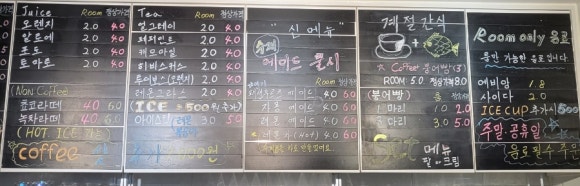 Juice Room 정상가격
오렌지 2.0 4.0
알로에 2.0 4.0
포도 2.0 4.0
토마토 2.0 4.0
(Non Coffee)
쵸코라떼 4.0 6.0
녹차라떼 4.0 6.0
(HOT. ICE 가능)
Coffee
Tea Room 정상가격
얼그레이 2.0 4.0
페퍼민트 2.0 4.0
캐모마일 2.0 4.0
히비스커스 2.0 4.0
루이보스(오렌지) 2.0 4.0
레몬그라스 2.0 4.0
(ICE → 500원 추가)
아이스티 5.0
"신메뉴"
수제
에이드 출시
Room 정상가격
에이드 4.0 6.0
에이드 4.0 6.0
에이드 4.0 6.0
(Hot) 4.0 6.0
계절간식
Coffee 붕어빵(3)
ROOM 5.0 정상가격 8.0
(붕어빵)
1마리 1.0 2.0
3마리 3.0 5.0
메뉴
팥 크림
Room only 음료
룸만 가능한 음료입니다
에비앙 1.8
사이다 2.0
ICE CUP 추가시 500
주말.공휴일
음료필수 주문